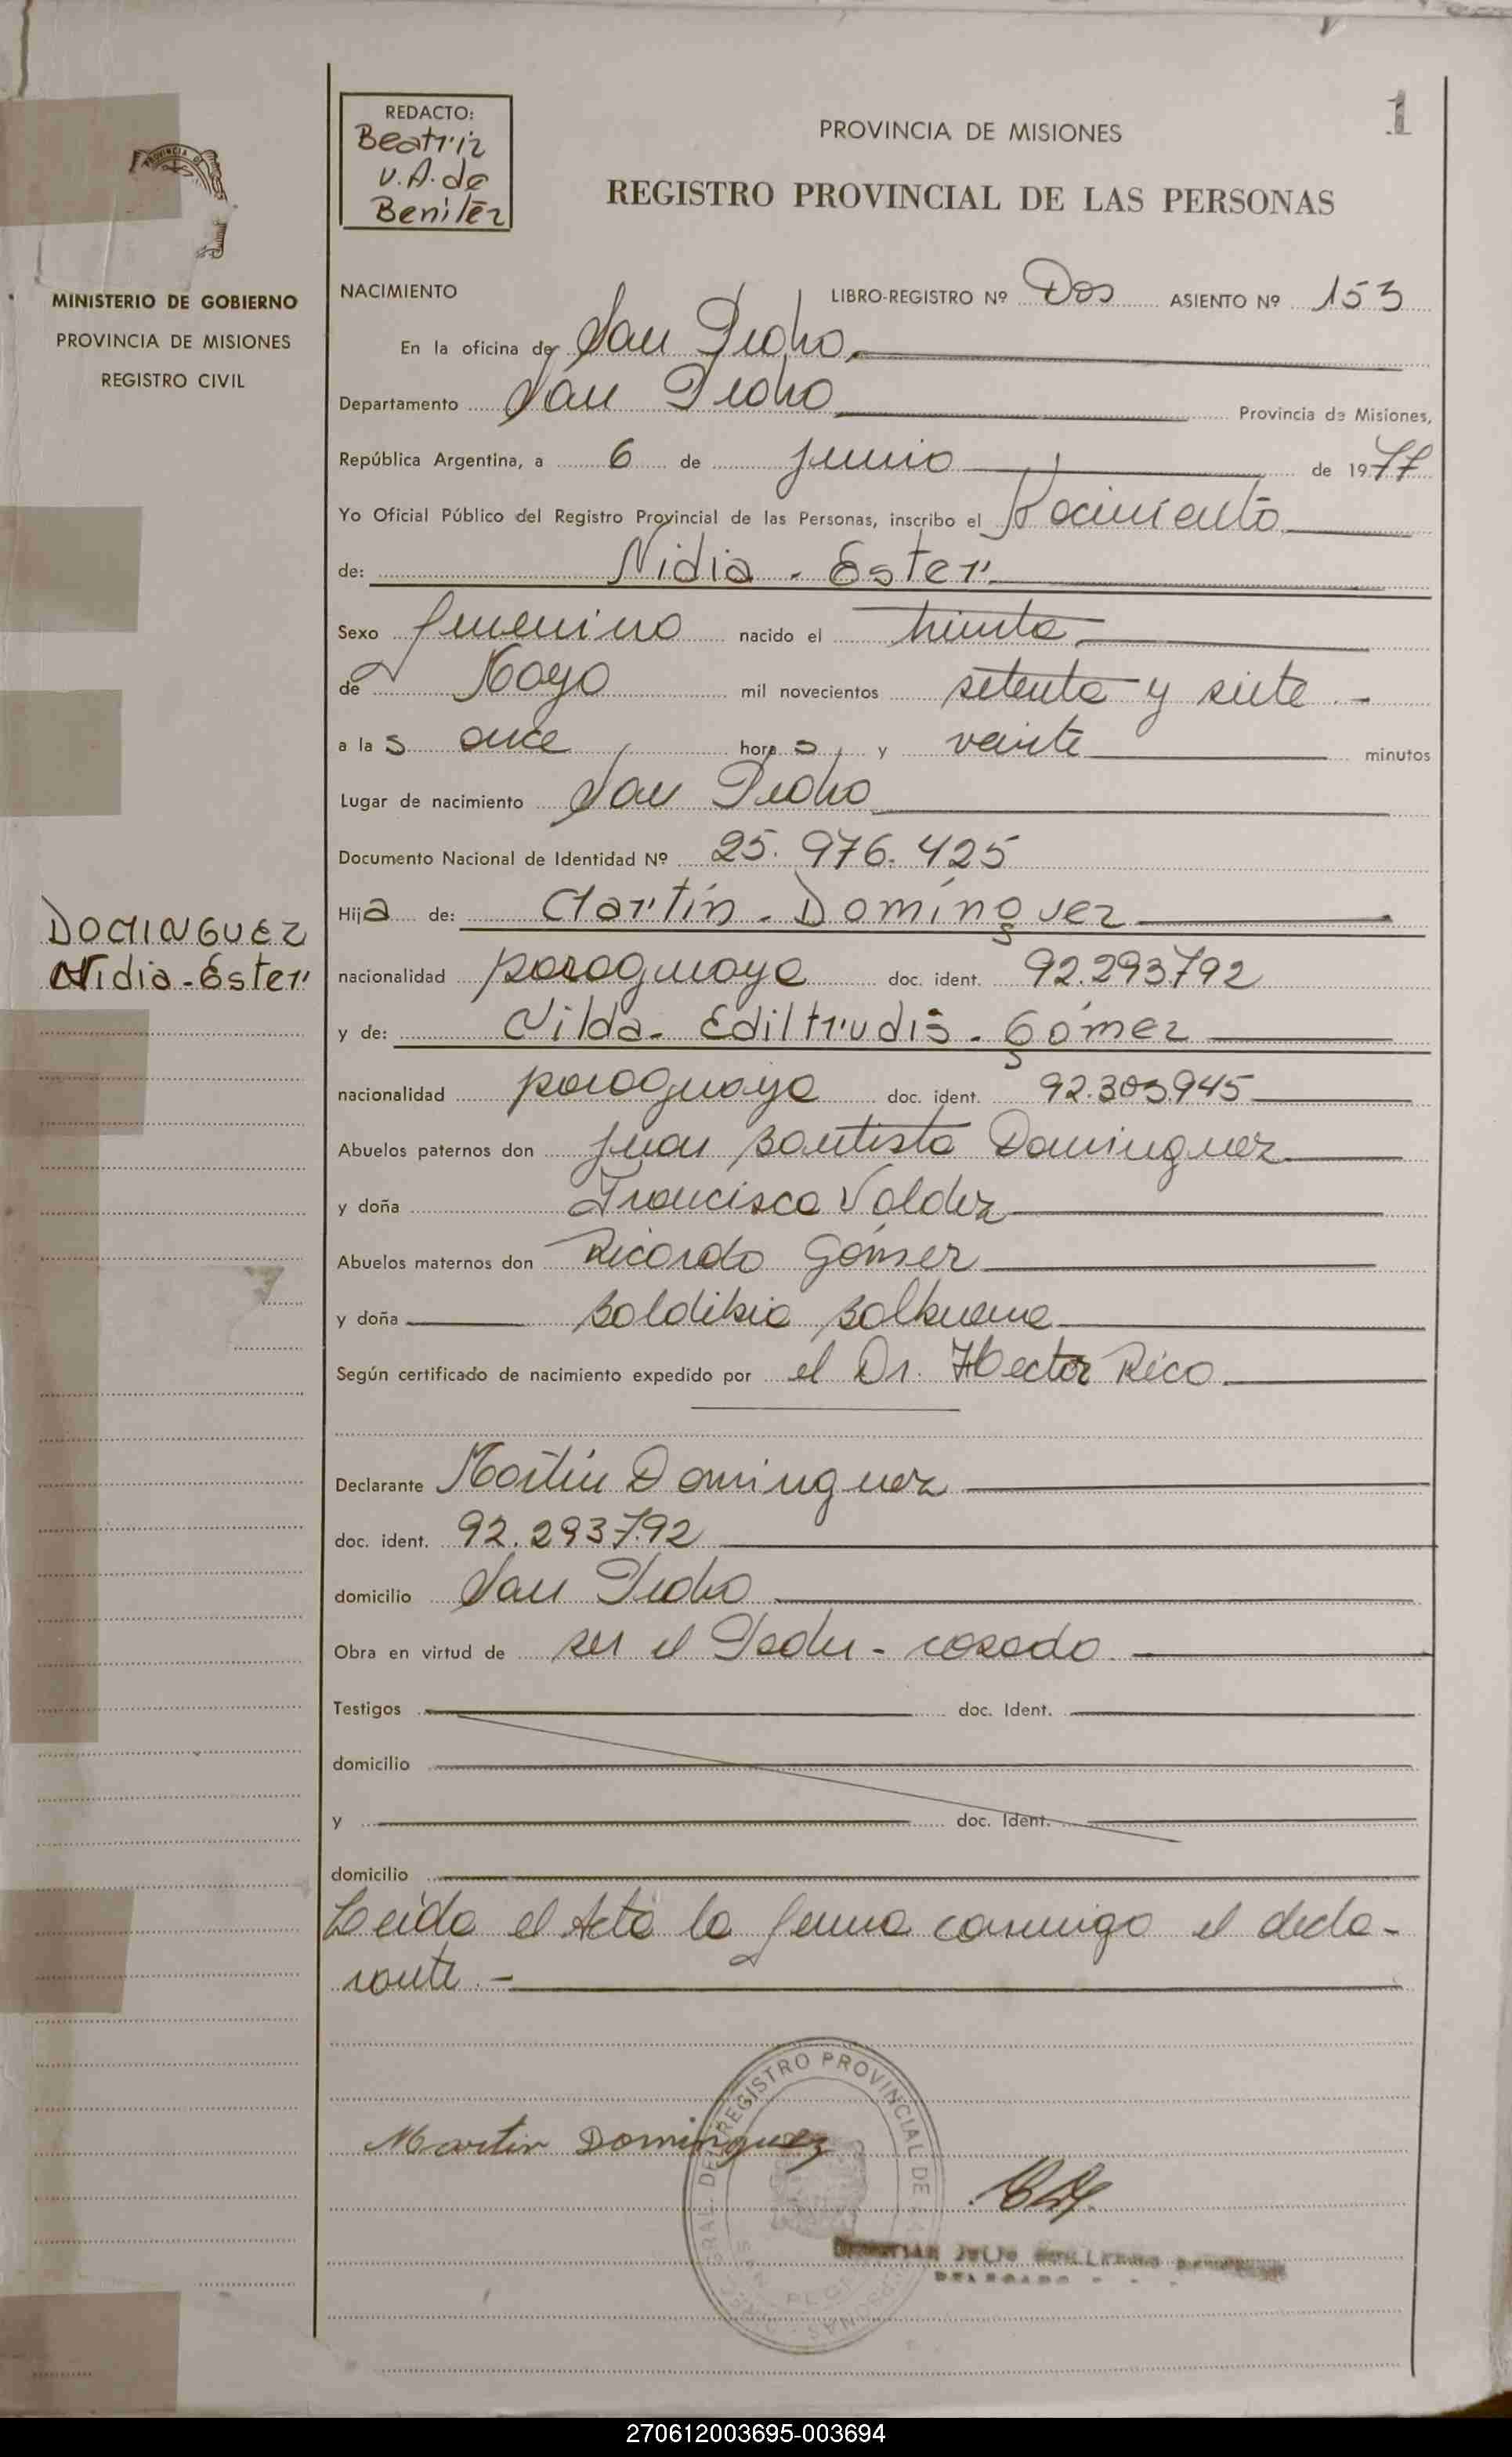 1
REDACTO:
Beatriz
V.A. de
Benitez
PROVINCIA DE MISIONES
REGISTRO PROVINCIAL DE LAS PERSONAS
MINISTERIO DE GOBIERNO
PROVINCIA DE MISIONES
REGISTRO CIVIL
NACIMIENTO
LIBRO-REGISTRO Nº Dos ASIENTO Nº 153
En la oficina de San Pedro
Departamento San Pedro Provincia de Misiones,
República Argentina, a 6 de junio de 1977
Yo Oficial Público del Registro Provincial de las Personas, inscribo el Nacimiento
de: Nidia - Ester
Sexo femenino nacido el treinta
de Mayo mil novecientos setenta y siete -
a las once horas y veinte minutos
Lugar de nacimiento San Pedro
Documento Nacional de Identidad Nº 25.976.425
Hija de: Martín - Domínguez
DOMINGUEZ
Nidia - Ester
nacionalidad paraguaya doc. ident. 92.293.792
y de: Nilda - Ediltrudis - Gómez
nacionalidad paraguaya doc. ident. 92.303.945
Abuelos paternos don Juan Bautista Dominguez
y doña Francisca Valdez
Abuelos maternos don Ricardo Gómez
y doña
Según certificado de nacimiento expedido por el Dr. Hector Rico
Declarante Martín Dominguez
doc. ident. 92.293.792
domicilio San Pedro
Obra en virtud de ser el Padre - casado
Testigos doc. Ident.
domicilio
y doc. Ident.
domicilio
Leída el Acta la firma conmigo el decla-
rante. -
Martin Dominguez
REGISTRO PROVINCIAL DE
270612003695-003694